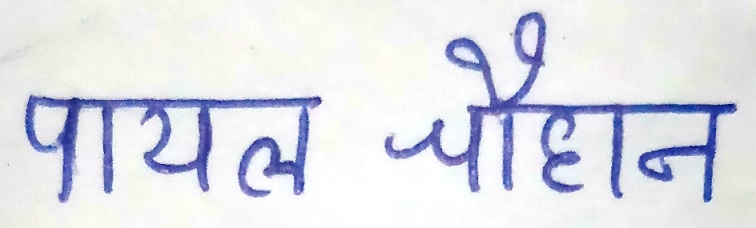 पायल चौहान